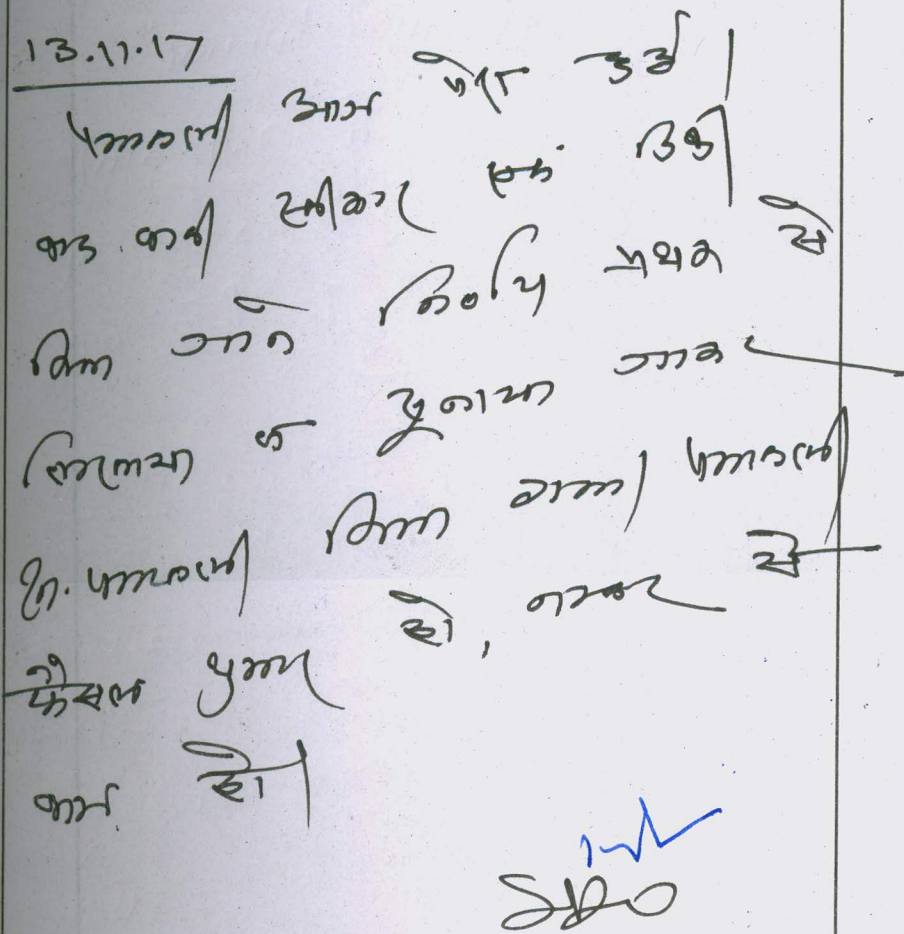 13.11.17
पत्रावली आज पेश हुई।
वाद वादी स्वीकार एवं डिक्री
किया जाने निर्णय पृथक से
लिखाया व सुनाया जाकर
शा. पत्रावली किया गया। पत्रावली
फैसल शुमार हो, नम्बर से
कम हो।
SDO